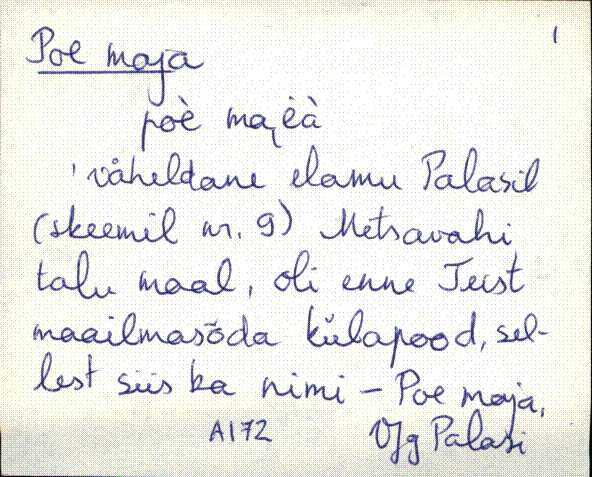 1
Poe maja
poè maịèà
'väheldane elamu Palasil
(skeemil nr. 9) Metsavahi
talu maal, oli enne Teist
maailmasõda külapood, sel-
lest siis ka nimi – Poe maja,
AI72 VJg Palasi